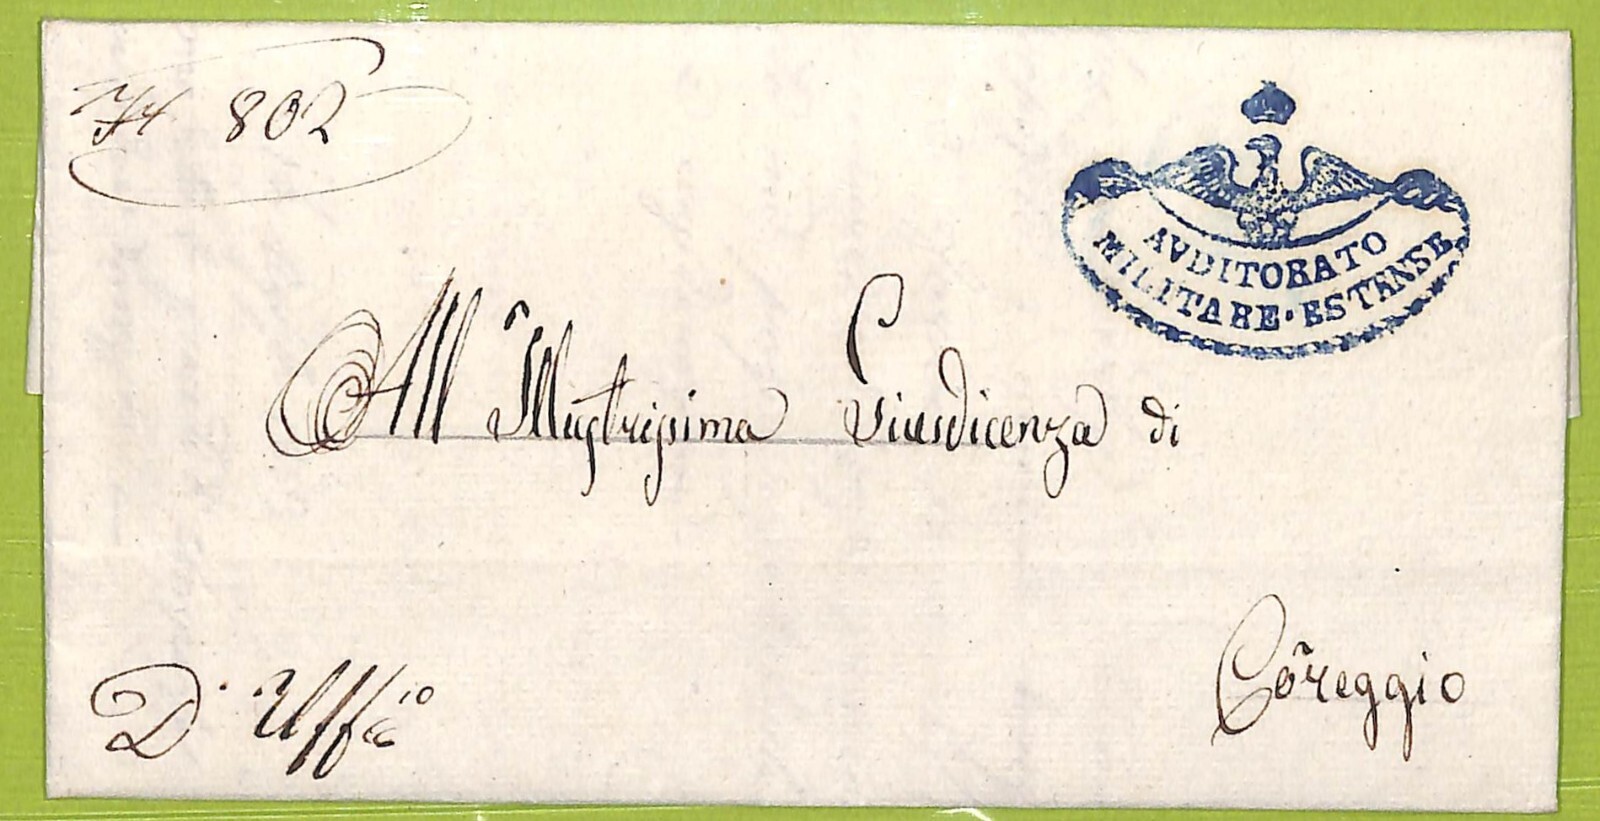 802
AVDITORATO
MILITARE·ESTENSE
All' Illustrissima Giusdicenza di
Coreggio
D'Uffcio